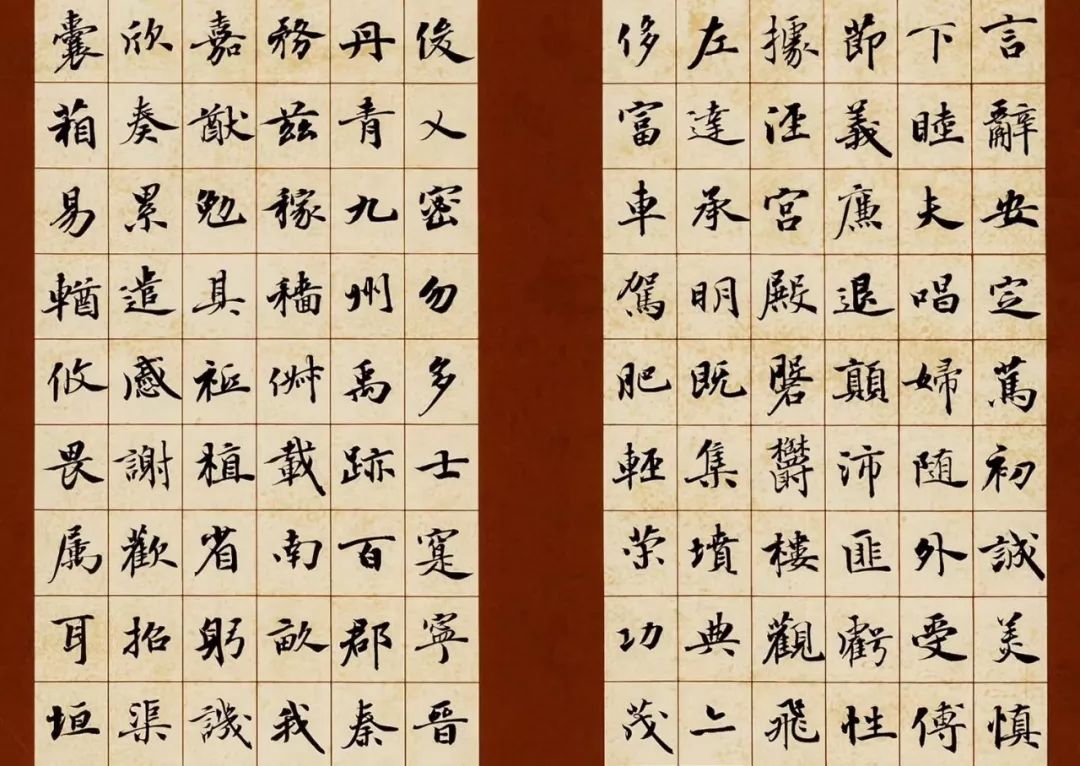 言辭安定篤初誠美慎
下睦夫唱婦随外受傅
節義廉退顛沛匪虧性
據涇宮殿磐鬱樓觀飛
左達承明既集墳典
侈富車駕肥輕榮功茂
俊乂密勿多士寔寧晉
丹青九州禹跡百郡秦
務茲稼穡俶載南畝我
嘉猷勉其祗植省躬譏
欣奏累遣慼謝歡招渠
囊箱易輶攸畏属耳垣